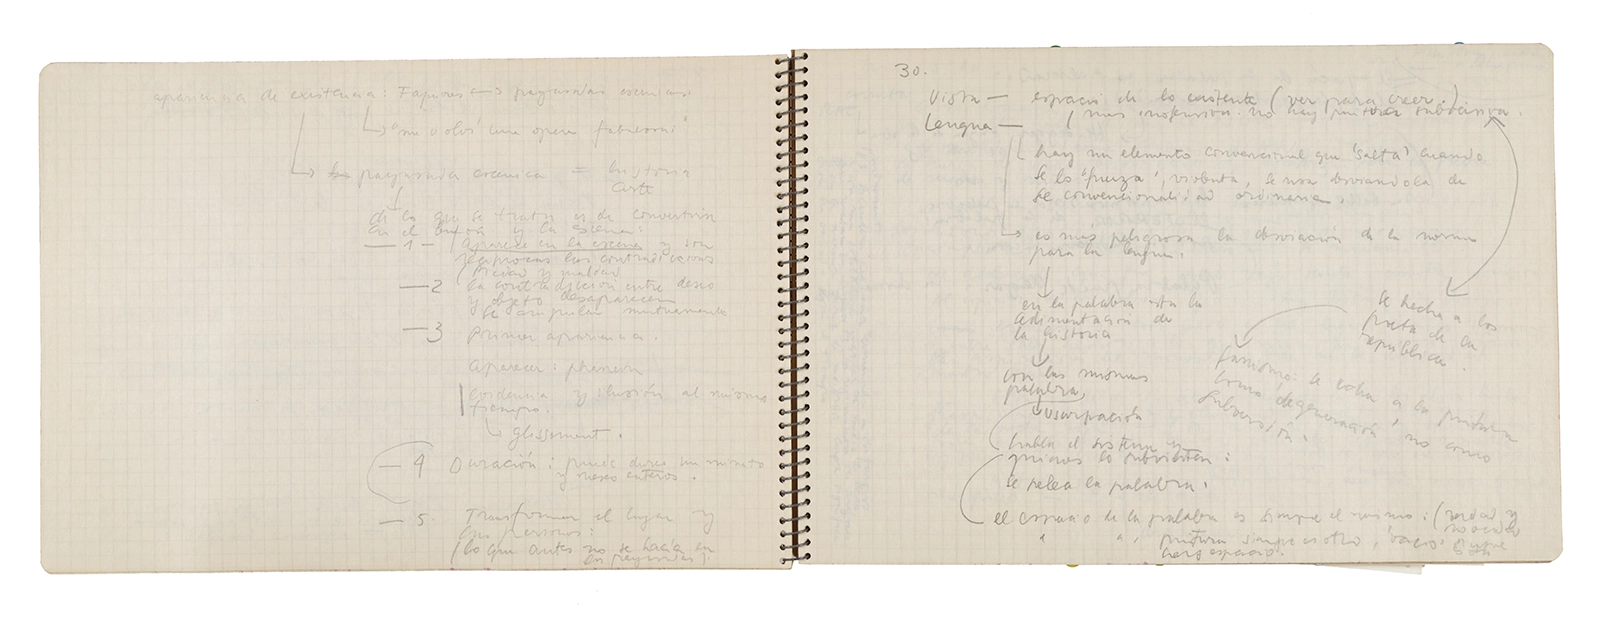 apariencia de existencia: Favores <-> payasadas escénicas
"me volví una opera fabulosa"
payasada escénica = historia
arte
de lo que se trata es de convertirse
en el        y la escena:
— 1 — aparece en la escena y son
recíprocas las contradicciones
y maldad
— 2 la contradicción entre deseo
y objeto desaparecen
y se            mutuamente
— 3 primer apariencia.
aparecer:
evidencia y ilusión al mismo
tiempo.
glissement.
— 4 Duración: puede durar un minuto
y meses enteros.
— 5. Transformar el lugar y
las personas:
(lo que antes no se hacía en
30.
Vista — espacio de lo existente (ver para creer.)
mas inofensivo. no hay pintura subversiva.
Lengua —
hay un elemento convencional que 'salta' cuando
se lo 'fuerza', violenta, se usa desviandola de
su convencionalidad ordinaria.
es más peligrosa la desviación de la norma
para la lengua.
en la palabra esta la
sedimentación de
la historia
con las mismas
palabras
usurpación
habla el sistema y
quienes lo subvierten:
se pelea la palabra.
el espacio de la palabra es siempre el mismo: (verdad y
" " pintura siempre es otro, 'vacio'
espacio.
se hecha a los
poeta de la
república.
fascismo: se echa a la pintura
como degeneración, no como
subversión.